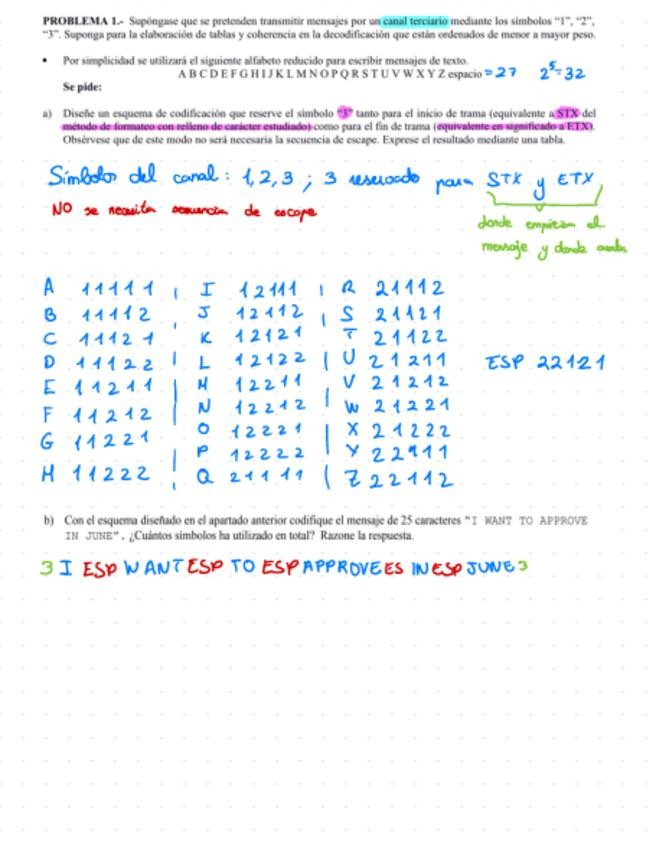 PROBLEMA 1.- Supóngase que se pretenden transmitir mensajes por un canal terciario mediante los símbolos "1", "2",
"3". Suponga para la elaboración de tablas y coherencia en la decodificación que están ordenados de menor a mayor peso.
• Por simplicidad se utilizará el siguiente alfabeto reducido para escribir mensajes de texto.
A B C D E F G H I J K L M N O P Q R S T U V W X Y Z espacio = 27 2^5=32
Se pide:
a) Diseñe un esquema de codificación que reserve el símbolo "3" tanto para el inicio de trama (equivalente a STX del
método de formateo con relleno de carácter estudiado) como para el fin de trama (equivalente en significado a ETX).
Obsérvese que de este modo no será necesaria la secuencia de escape. Exprese el resultado mediante una tabla.
Símbolos del canal: 1, 2, 3 ; 3 reservado para STX y ETX
NO se necesita secuencia de escape
donde empieza el
mensaje y donde acaba
A 11111 | I 12111 | R 21112
B 11112 | J 12112 | S 21121
C 11121 K 12121 T 21122
D 11122 | L 12122 | U 21211 ESP 22121
E 11211 | M 12211 V 21212
F 11212 | N 12212 | W 21221
G 11221 O 12221 | X 21222
P 12222 | Y 22111
H 11222 | Q 21111 | Z 22112
b) Con el esquema diseñado en el apartado anterior codifique el mensaje de 25 caracteres "I WANT TO APPROVE
IN JUNE". ¿Cuántos símbolos ha utilizado en total? Razone la respuesta.
3 I ESP WANT ESP TO ESP APPROVE ES IN ESP JUNE 3